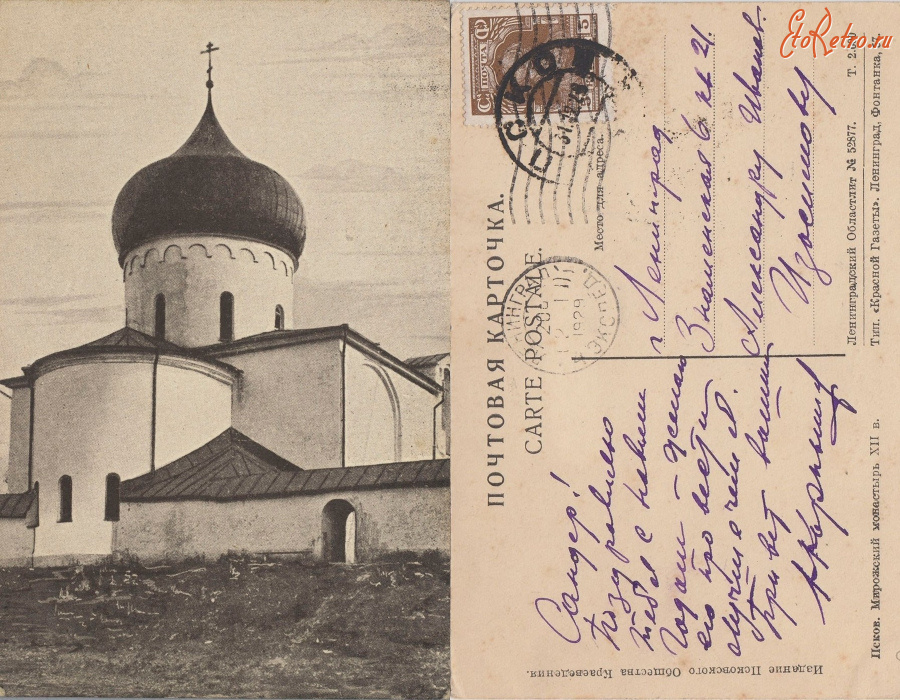 EtoRetro.ru
ПОЧТА
5
ПСКОВ
1929
ЭКСПЕД.
ПОЧТОВАЯ КАРТОЧКА.
CARTE POSTALE.
Место для адреса.
г Ленинград
Знаменская 6 кв 21.
Александру Иванов.
Изосимову
Сандер!
Поздравляю
тебя с новым
годом желаю
его провести
лучше чем
Привет вашим
Псков. Мирожский монастырь XII в.
Издание Псковского Общества Краеведения.
Ленинградский Областлит № 52877.
Тип. «Красной Газеты». Ленинград, Фонтанка, 57